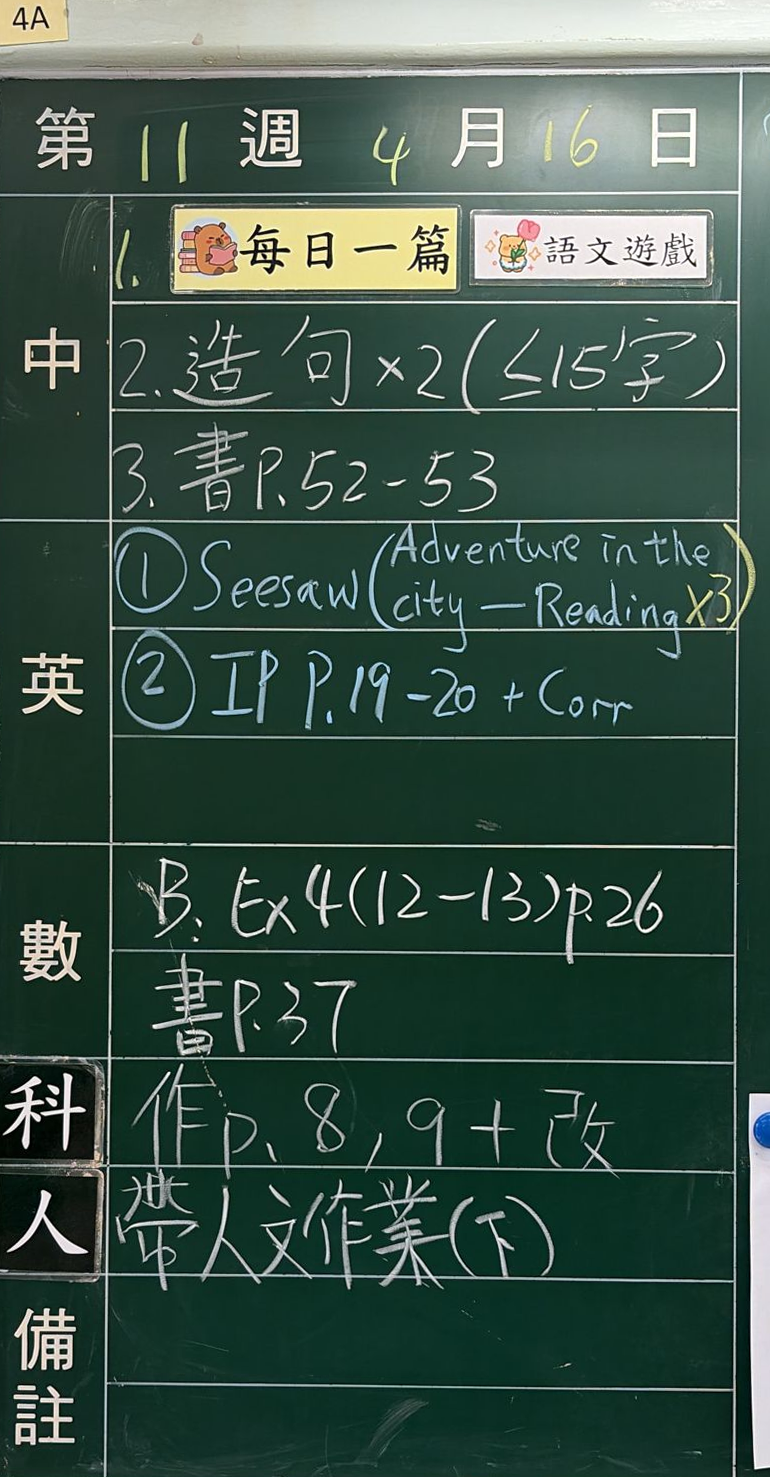 4A
第 11 週 4 月 16 日
中
1. 每日一篇 語文遊戲
2. 造句 ×2 (≤15字)
3. 書P.52-53
英
① Seesaw (Adventure in the
city — Reading ×3)
② IP P.19-20 + Corr
數
B. Ex 4(12-13)p.26
書P.37
科
作p. 8, 9 + 改
人
帶人文作業(下)
備註